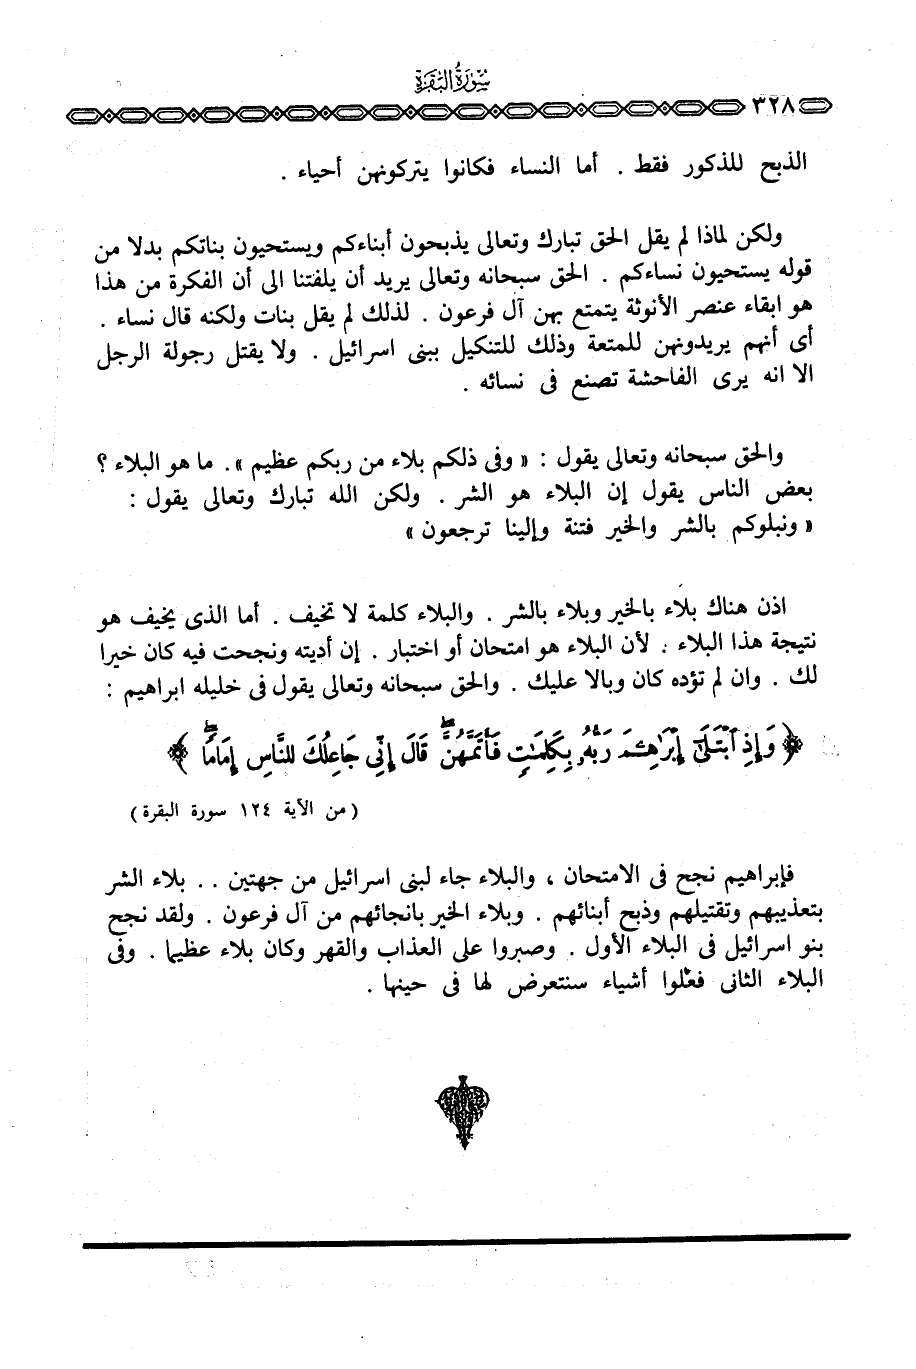 سورة البقرة
٣٢٨
الذبح للذكور فقط . أما النساء فكانوا يتركونهن أحياء .
ولكن لماذا لم يقل الحق تبارك وتعالى يذبحون أبناءكم ويستحيون بناتكم بدلا من
قوله يستحيون نساءكم . الحق سبحانه وتعالى يريد أن يلفتنا الى أن الفكرة من هذا
هو ابقاء عنصر الأنوثة يتمتع بهن آل فرعون . لذلك لم يقل بنات ولكنه قال نساء .
أى أنهم يريدونهن للمتعة وذلك للتنكيل ببنى اسرائيل . ولا يقتل رجولة الرجل
الا انه يرى الفاحشة تصنع فى نسائه .
والحق سبحانه وتعالى يقول : « وفى ذلكم بلاء من ربكم عظيم ». ما هو البلاء ؟
بعض الناس يقول إن البلاء هو الشر . ولكن الله تبارك وتعالى يقول :
« ونبلوكم بالشر والخير فتنة وإلينا ترجعون »
اذن هناك بلاء بالخير وبلاء بالشر . والبلاء كلمة لا تخيف . أما الذى يخيف هو
نتيجة هذا البلاء . لأن البلاء هو امتحان أو اختبار . إن أديته ونجحت فيه كان خيرا
لك . وان لم تؤده كان وبالا عليك . والحق سبحانه وتعالى يقول فى خليله ابراهيم :
﴿ وَإِذِ ٱبْتَلَىٰٓ إِبْرَٰهِـۧمَ رَبُّهُۥ بِكَلِمَـٰتٍ فَأَتَمَّهُنَّۖ قَالَ إِنِّى جَاعِلُكَ لِلنَّاسِ إِمَامًاۖ ﴾
( من الآية ١٢٤ سورة البقرة )
فإبراهيم نجح فى الامتحان ، والبلاء جاء لبنى اسرائيل من جهتين . . بلاء الشر
بتعذيبهم وتقتيلهم وذبح أبنائهم . وبلاء الخير بانجائهم من آل فرعون . ولقد نجح
بنو اسرائيل فى البلاء الأول . وصبروا على العذاب والقهر وكان بلاء عظيما . وفى
البلاء الثانى فعلوا أشياء سنتعرض لها فى حينها .